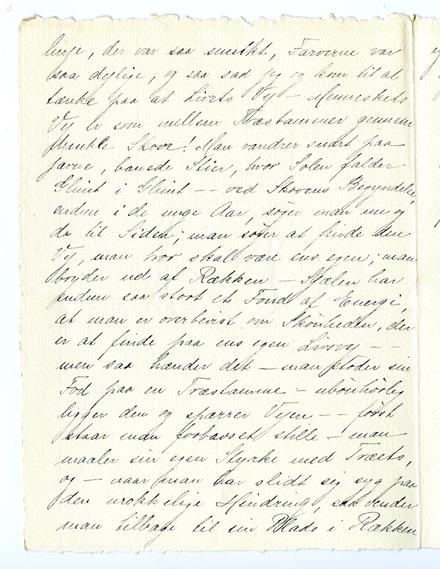 linge, der var saa smukt, Farverne var
saa dejlige, og saa sad jeg og kom til at
tænke paa at Livets Vej – Menneskets
Vej er som mellem Træstammer gennem
smukke Skove! Man vandrer endnu paa
jævne, banede Stier, hvor Solen falder
Glimt i Glimt – – ved Skovens Begyndelse,
endnu i de unge Aar, søger man nu og
da til Siden; man søger at finde den
Vej, man tror skal være ens egen; man
bryder ud af Rækken – Sjælen har
endnu saa stort et Fond af Energi,
at man er overbevist om Skønheden, der
er at finde paa ens egen Livsvej – –
men saa hænder det – man støder sin
Fod paa en Træstamme – ubønhørlig
ligger den og spærrer Vejen – – først
staar man forbavset stille – man
maaler sin egen Styrke med Træets,
og – naar man har slidt sig syg paa
den urokkelige Hindring, saa vender
man tilbage til sin Plads i Rækken